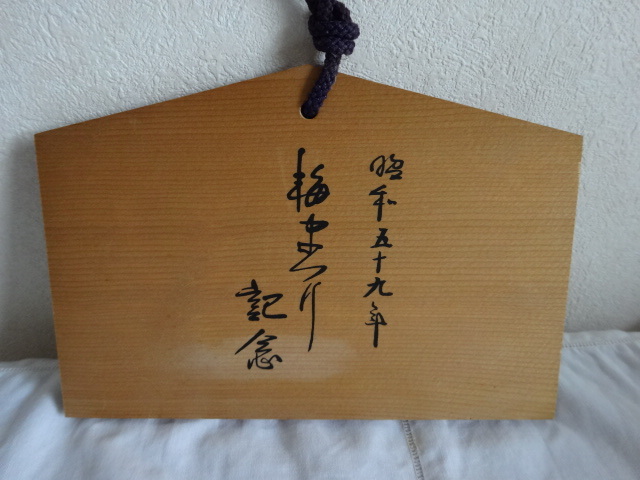 昭和五十九年
梅まつり
記念